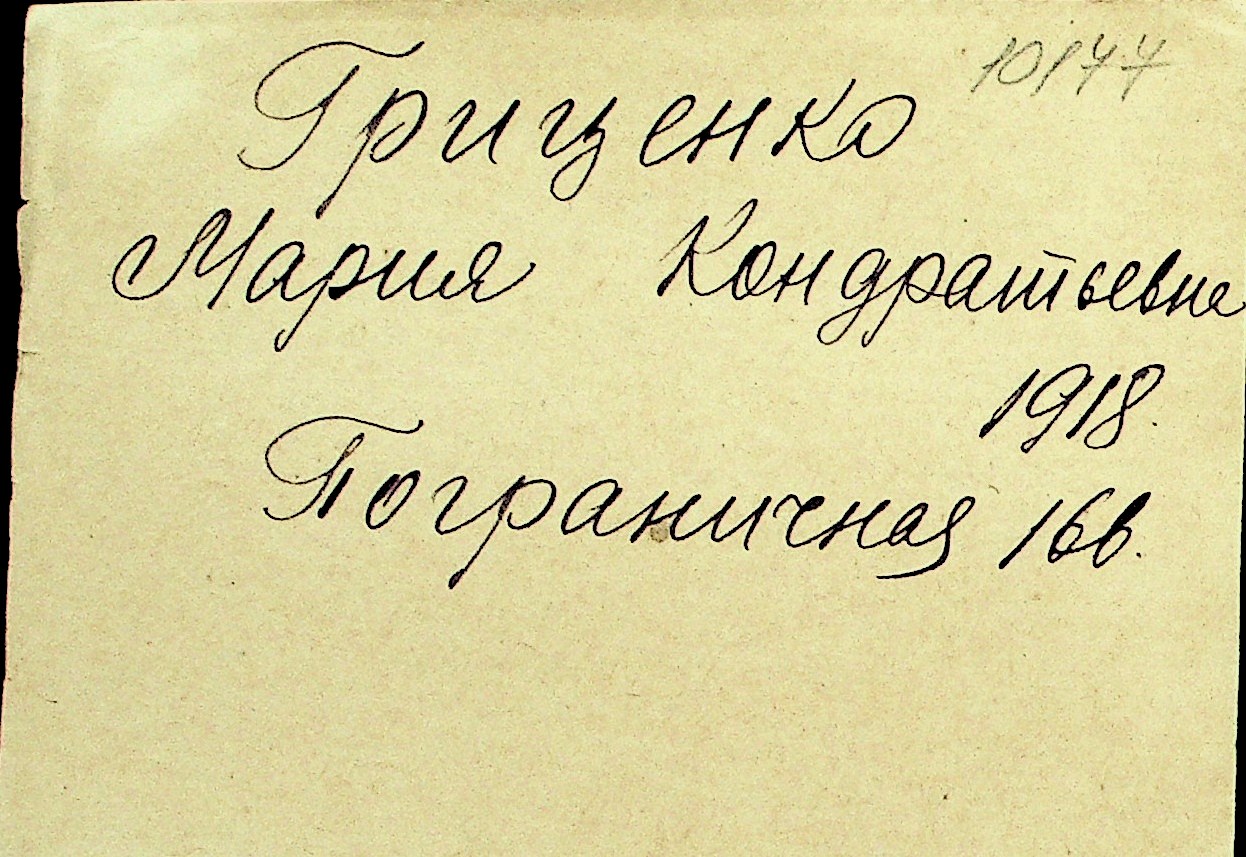 10177
Гриценко
Мария Кондратьевна
1918.
Пограничная 16в.